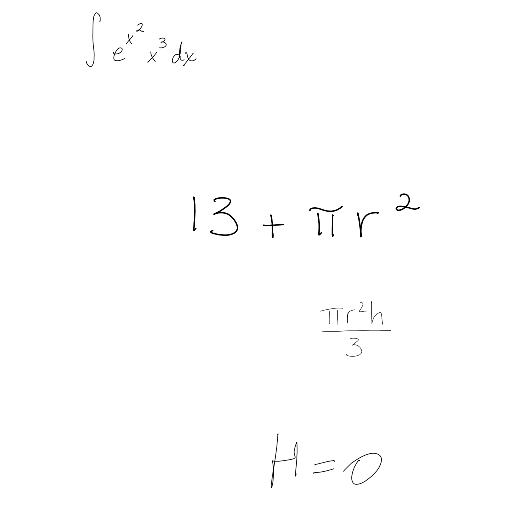 ∫ e^{x^2} x^3 dx
13 + πr^2
\frac{πr^2h}{3}
H = 0